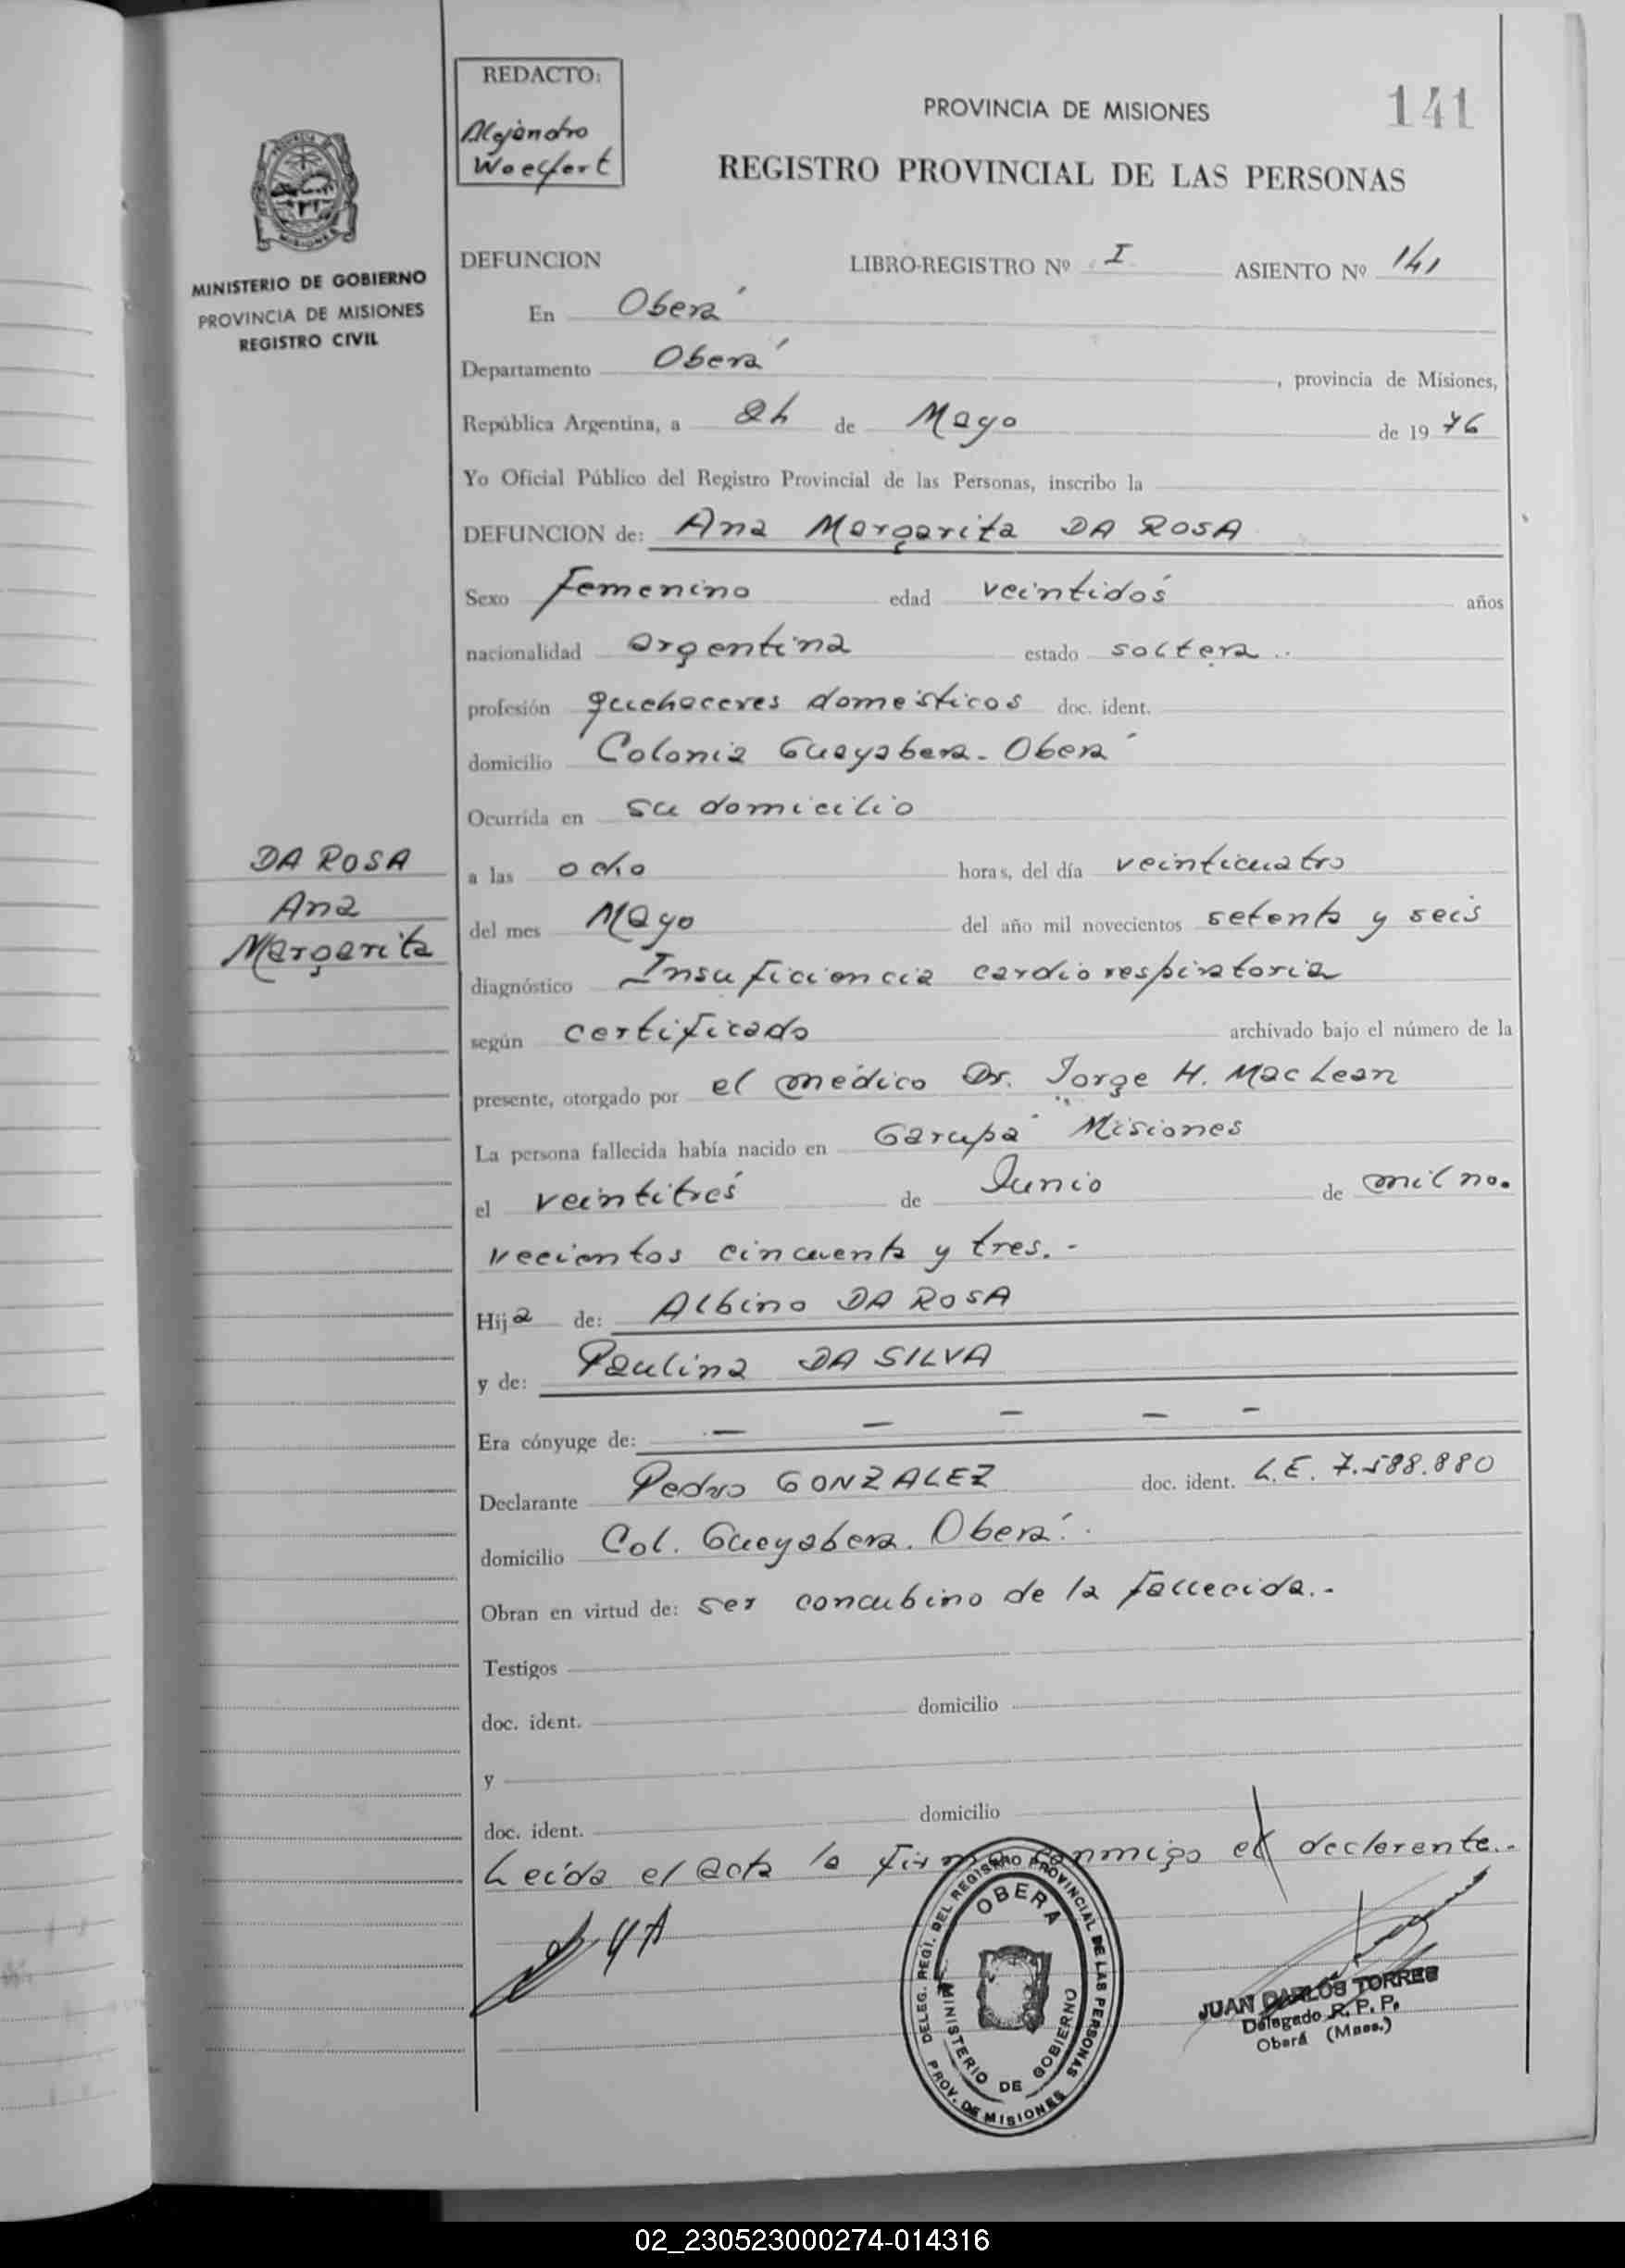 REDACTO:
Alejandro
Woelfert
PROVINCIA DE MISIONES
141
REGISTRO PROVINCIAL DE LAS PERSONAS
MISIONES
MINISTERIO DE GOBIERNO
PROVINCIA DE MISIONES
REGISTRO CIVIL
DEFUNCION LIBRO-REGISTRO Nº I ASIENTO Nº 141
En Oberá
Departamento Oberá, provincia de Misiones,
República Argentina, a 24 de Mayo de 1976
Yo Oficial Público del Registro Provincial de las Personas, inscribo la
DEFUNCION de: Ana Margarita DA ROSA
Sexo Femenino edad veintidós años
nacionalidad argentina estado soltera..
profesión quehaceres domésticos doc. ident.
domicilio Colonia Guayabera - Oberá
Ocurrida en su domicilio
DA ROSA
Ana
Margarita
a las ocho horas, del día veinticuatro
del mes Mayo del año mil novecientos setenta y seis
diagnóstico Insuficiencia cardiorespiratoria
según certificado archivado bajo el número de la
presente, otorgado por el médico Dr. Jorge H. MacLean
La persona fallecida había nacido en Garupá Misiones
el veintitrés de Junio de mil no.
vecientos cincuenta y tres.-
Hija de: Albino DA ROSA
y de: Paulina DA SILVA
Era cónyuge de: — — — — —
Declarante Pedro GONZALEZ doc. ident. L.E. 7.588.880
domicilio Col. Guayabera. Oberá.
Obran en virtud de: ser concubino de la fallecida.-
Testigos
doc. ident. domicilio
y
doc. ident. domicilio
Leída el acta la firma conmigo el declarante.-
DELEG. REGI. DEL REGISTRO PROVINCIAL DE LAS PERSONAS
PROV. DE MISIONES
OBERA
MINISTERIO DE GOBIERNO
JUAN CARLOS TORRES
Delegado R. P. P.
Oberá (Mnes.)
02_230523000274-014316